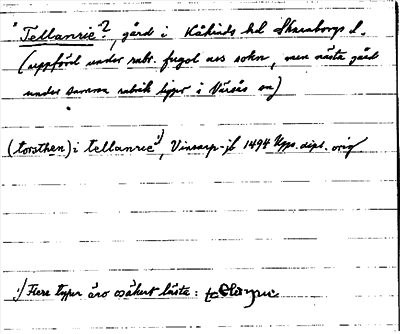 "Tellanric"?, gård i Kåkinds hd Skaraborgs l.
(uppförd under rubr. fugol ars sokn, men nästa gård
under samma rubrik ligger i Värsås sn)
(torsthen) i tellanric¹), Vinsarp-jb 1494 Upps. dipl. orig
¹) Flere typer äro osäkert lästa: